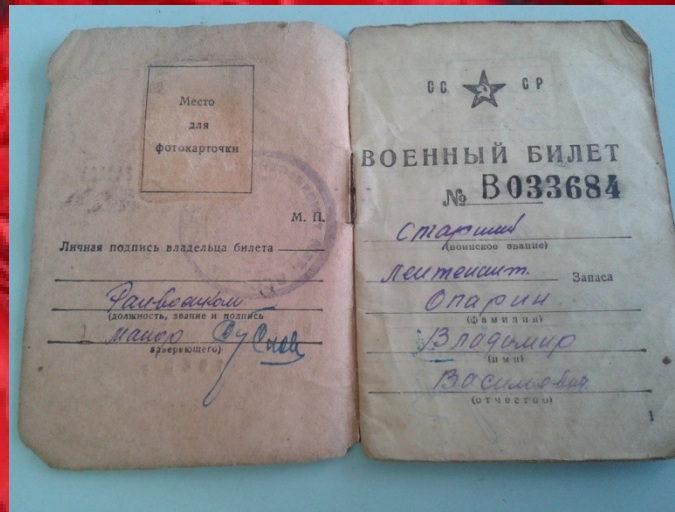 Место
для
фотокарточки
М. П.
Личная подпись владельца билета
Райвоенком
(должность, звание и подпись
майор
заверяющего)
СС СР
ВОЕННЫЙ БИЛЕТ
№ В 033684
Старший
(воинское звание)
лейтенант Запаса
Опарин
(фамилия)
Владимир
(имя)
Васильевич
(отчество)
1